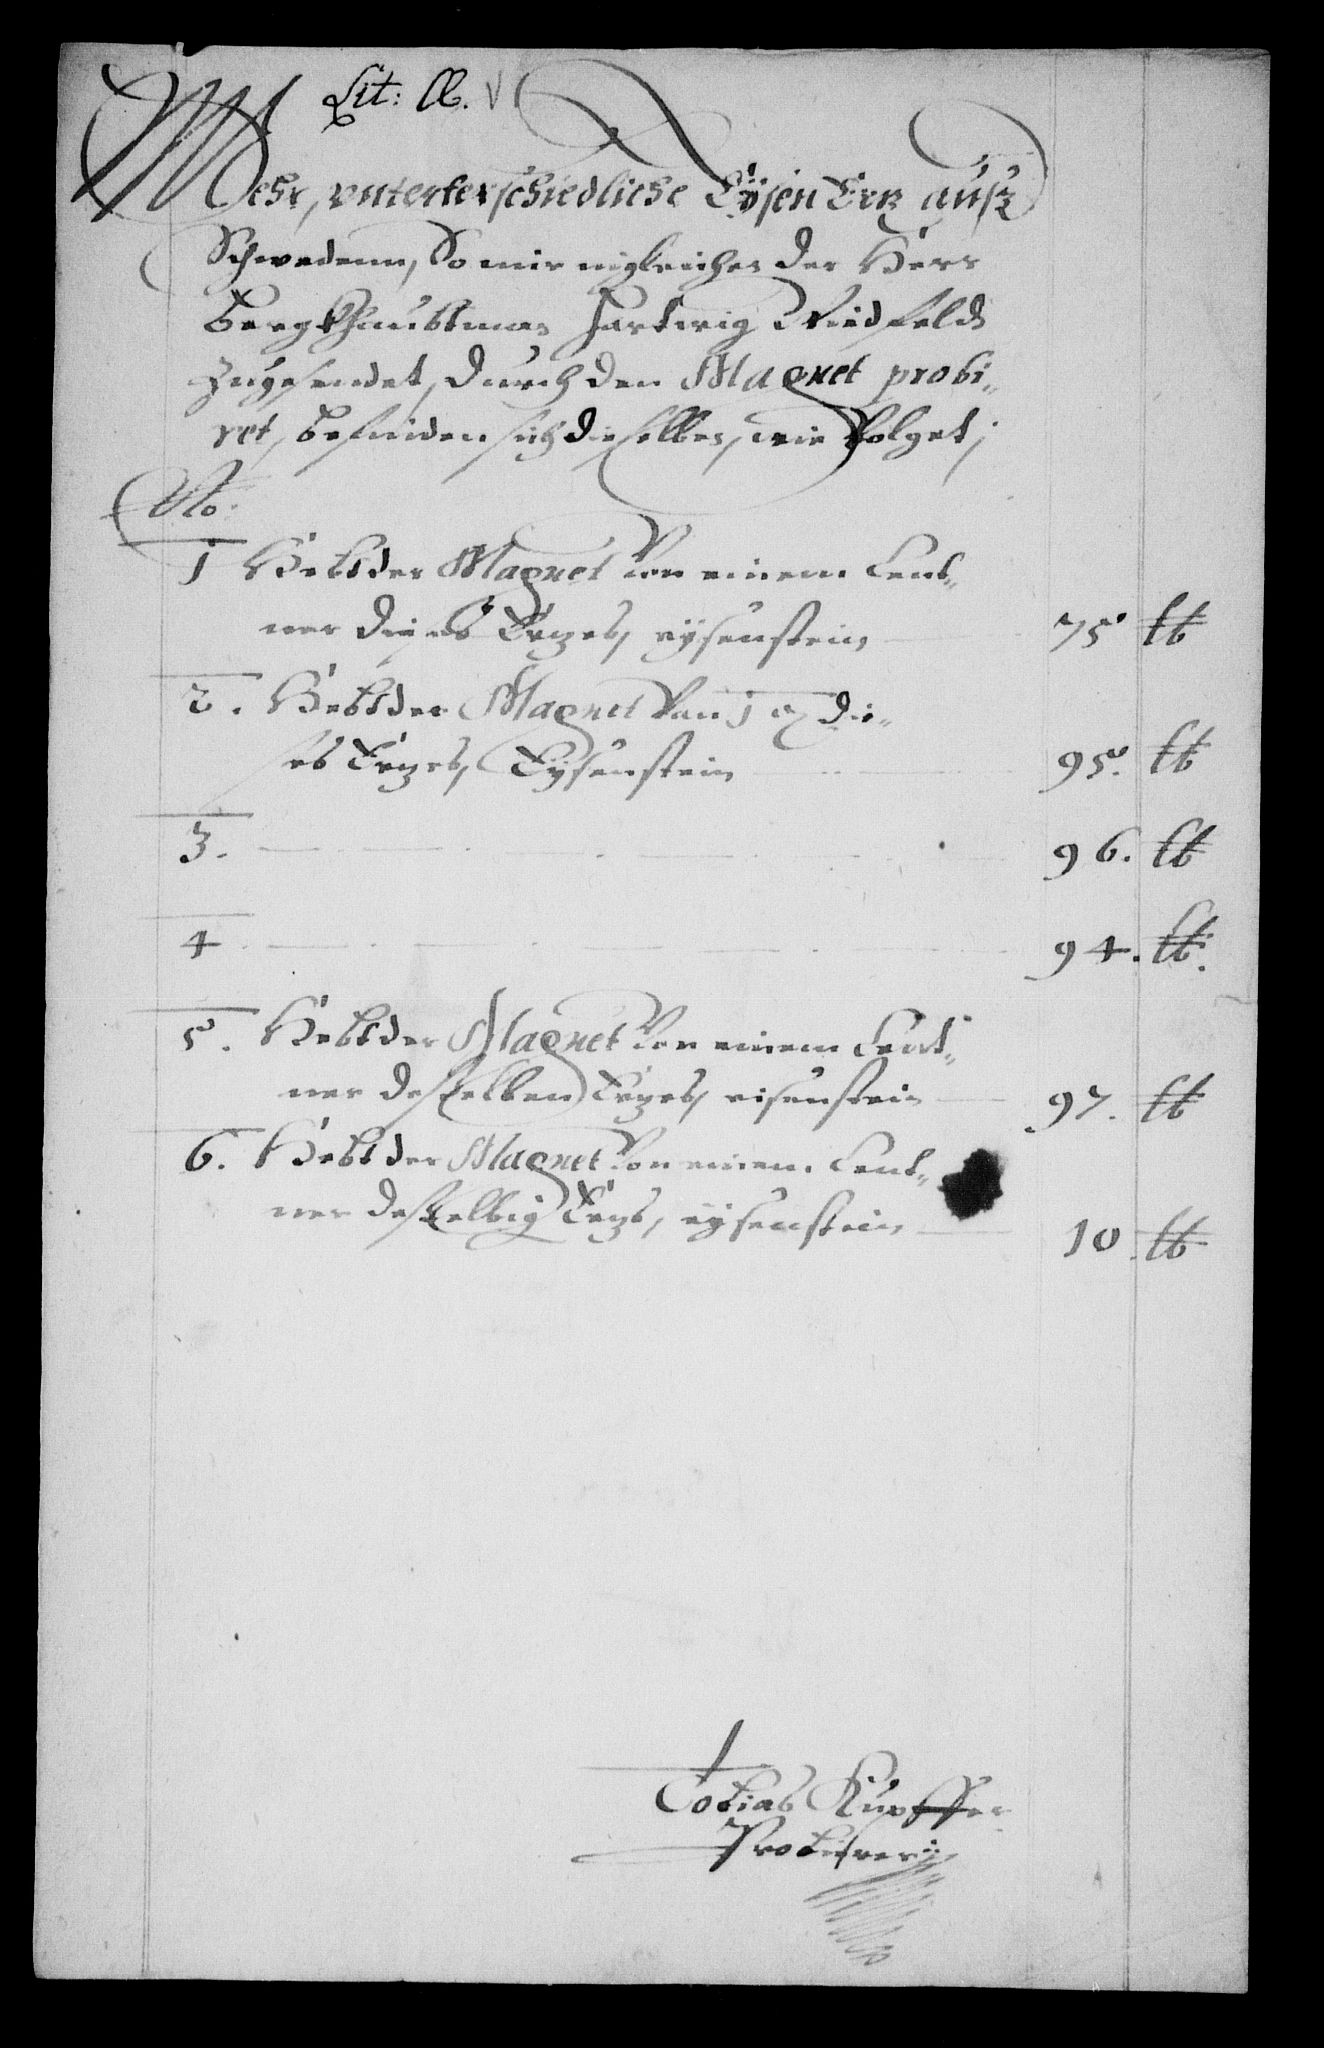 Lit: Œ.
Mehr, vnterterschiedliche Eÿsen Ertz auß
Schwedenn, So mir nigleichen der Herr
Bergkhaubtman Hartwig Wiedfeldt
Zugesendet, durch den Magnet probi-
ret, befinden sich dieselben, wie Volget;
No:
1 Hebt der Magnet Von einem Cent-
ner dießes Ertzes, eÿsenstein 75 lb
2. Hebt der Magnet Von 1 die-
ses Ertzes, Eÿsenstein 95. lb
3. 96. lb
4 94. lb.
5. Hebt der Magnet Von einem Cent-
ner deßelben Ertzes, eisenstein 97. lb
6. Hebt der Magnet Von einem Cent-
ner deßelbig Ertzs, eÿsenstein 10 lb
Tobias Kupffer
Probierer